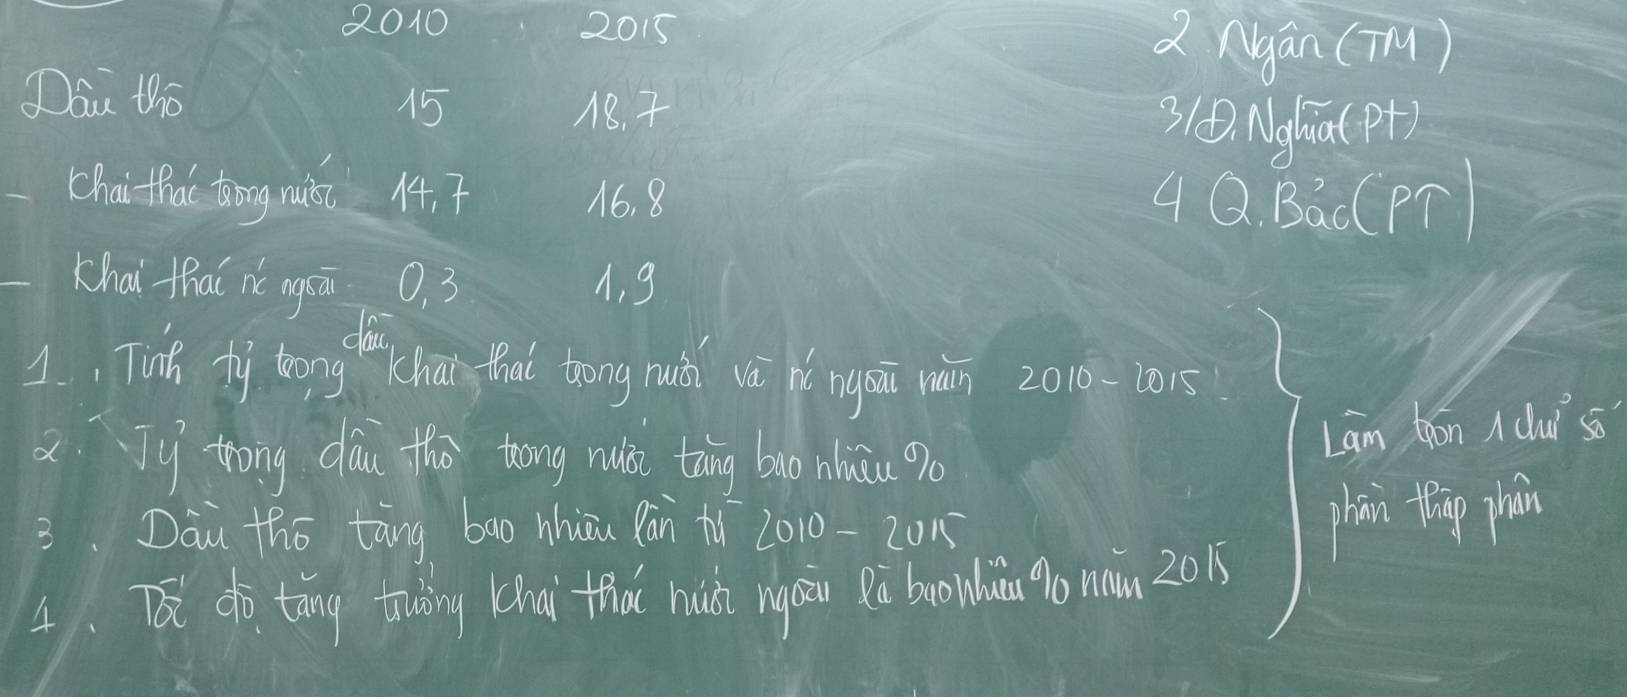 2010 2015
Dầu thô 15 18,7
- Khai thác trong nước 14,7 16,8
- Khai thác nc ngoài 0,3 1,9
1. Tính tỷ trọng dầu khai thác trong nước và nc ngoài năm 2010 - 2015.
2. Tỷ trọng dầu thô trong nước tăng bao nhiêu %
3. Dầu thô tăng bao nhiêu lần từ 2010 - 2015
4. Tốc độ tăng trưởng khai thác nước ngoài là bao nhiêu % năm 2015
Làm tròn 1 chữ số
phần thập phân
2 Ngân (TM)
3/Đ. Nghĩa (PT)
4 Q. Bảc (PT)